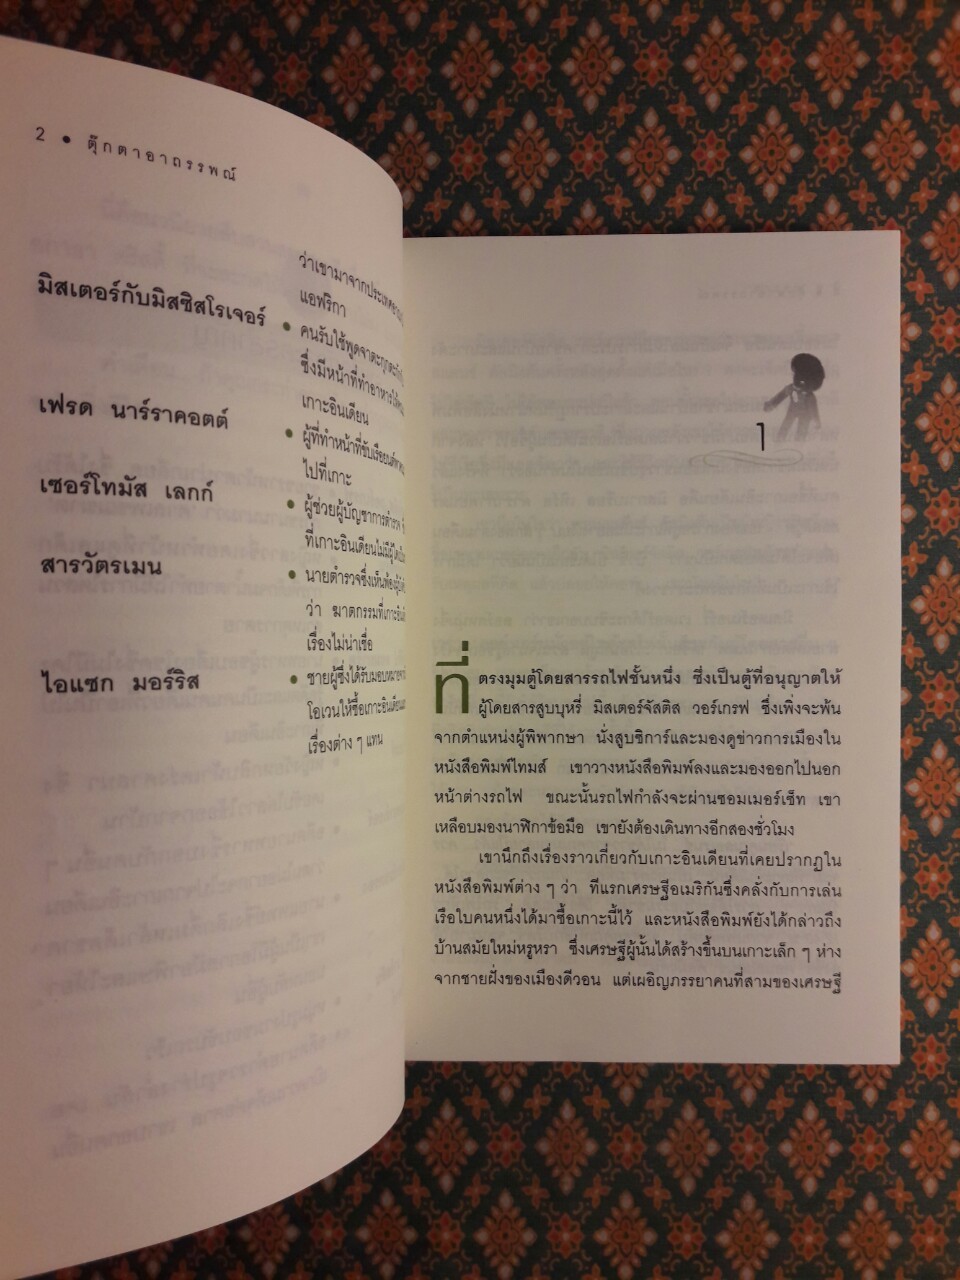 2 • ตุ๊กตาอาถรรพณ์
ว่าเขามาจากประเทศ
แอฟริกา
มิสเตอร์กับมิสซิสโรเจอร์ • คนรับใช้พูดจาตะกุกตะกัก
ซึ่งมีหน้าที่ทำอาหาร
เกาะอินเดียน
เฟรด นาร์ราคอตต์ • ผู้ที่ทำหน้าที่ขับเรือยนต์
ไปที่เกาะ
เซอร์โทมัส เลกก์ • ผู้ช่วยผู้บัญชาการตำรวจ
ที่เกาะอินเดียนไม่มีผู้ใด
สารวัตรเมน • นายตำรวจซึ่งเห็นพ้อง
ว่า ฆาตกรรมที่เกาะ
เรื่องไม่น่าเชื่อ
ไอแซก มอร์ริส • ชายผู้ซึ่งได้รับมอบหมาย
โอเวนให้ซื้อเกาะอินเดียน
เรื่องต่าง ๆ แทน
1
ที่ตรงมุมตู้โดยสารรถไฟชั้นหนึ่ง ซึ่งเป็นตู้ที่อนุญาตให้
ผู้โดยสารสูบบุหรี่ มิสเตอร์จัสติส วอร์เกรฟ ซึ่งเพิ่งจะพ้น
จากตำแหน่งผู้พิพากษา นั่งสูบซิการ์และมองดูข่าวการเมืองใน
หนังสือพิมพ์ไทมส์ เขาวางหนังสือพิมพ์ลงและมองออกไปนอก
หน้าต่างรถไฟ ขณะนั้นรถไฟกำลังจะผ่านซอมเมอร์เซ็ท เขา
เหลือบมองนาฬิกาข้อมือ เขายังต้องเดินทางอีกสองชั่วโมง
เขานึกถึงเรื่องราวเกี่ยวกับเกาะอินเดียนที่เคยปรากฏใน
หนังสือพิมพ์ต่าง ๆ ว่า ทีแรกเศรษฐีอเมริกันซึ่งคลั่งกับการเล่น
เรือใบคนหนึ่งได้มาซื้อเกาะนี้ไว้ และหนังสือพิมพ์ยังได้กล่าวถึง
บ้านสมัยใหม่หรูหรา ซึ่งเศรษฐีผู้นั้นได้สร้างขึ้นบนเกาะเล็ก ๆ ห่าง
จากชายฝั่งของเมืองดีวอน แต่เผอิญภรรยาคนที่สามของเศรษฐี